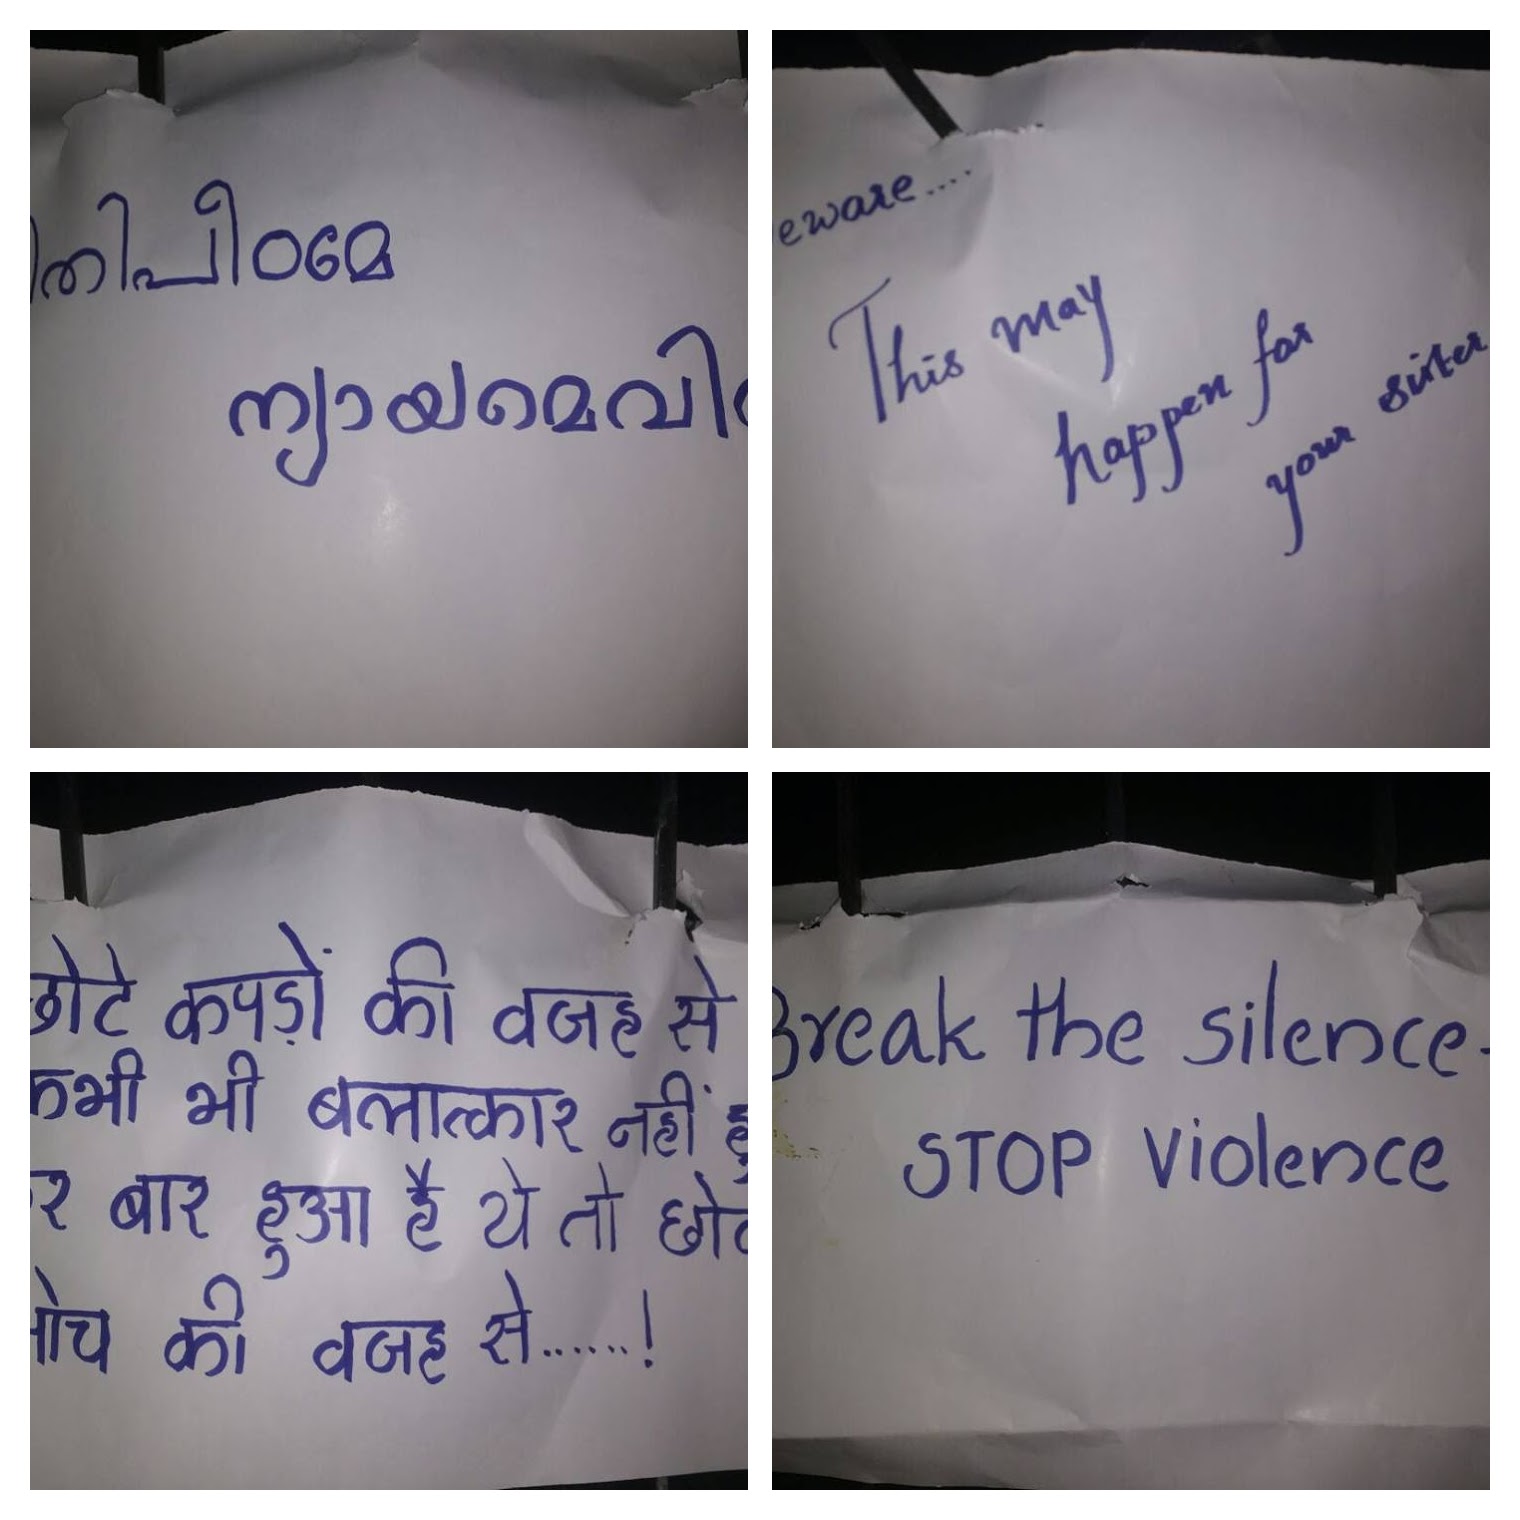 ിതിപീഠമേ
ന്യായമെവി
eware....
This may
happen for
your sister
छोटे कपड़ों की वजह से
कभी भी बलात्कार नहीं
र बार हुआ है ये तो
ोच की वजह से......!
Break the silence.
STOP violence